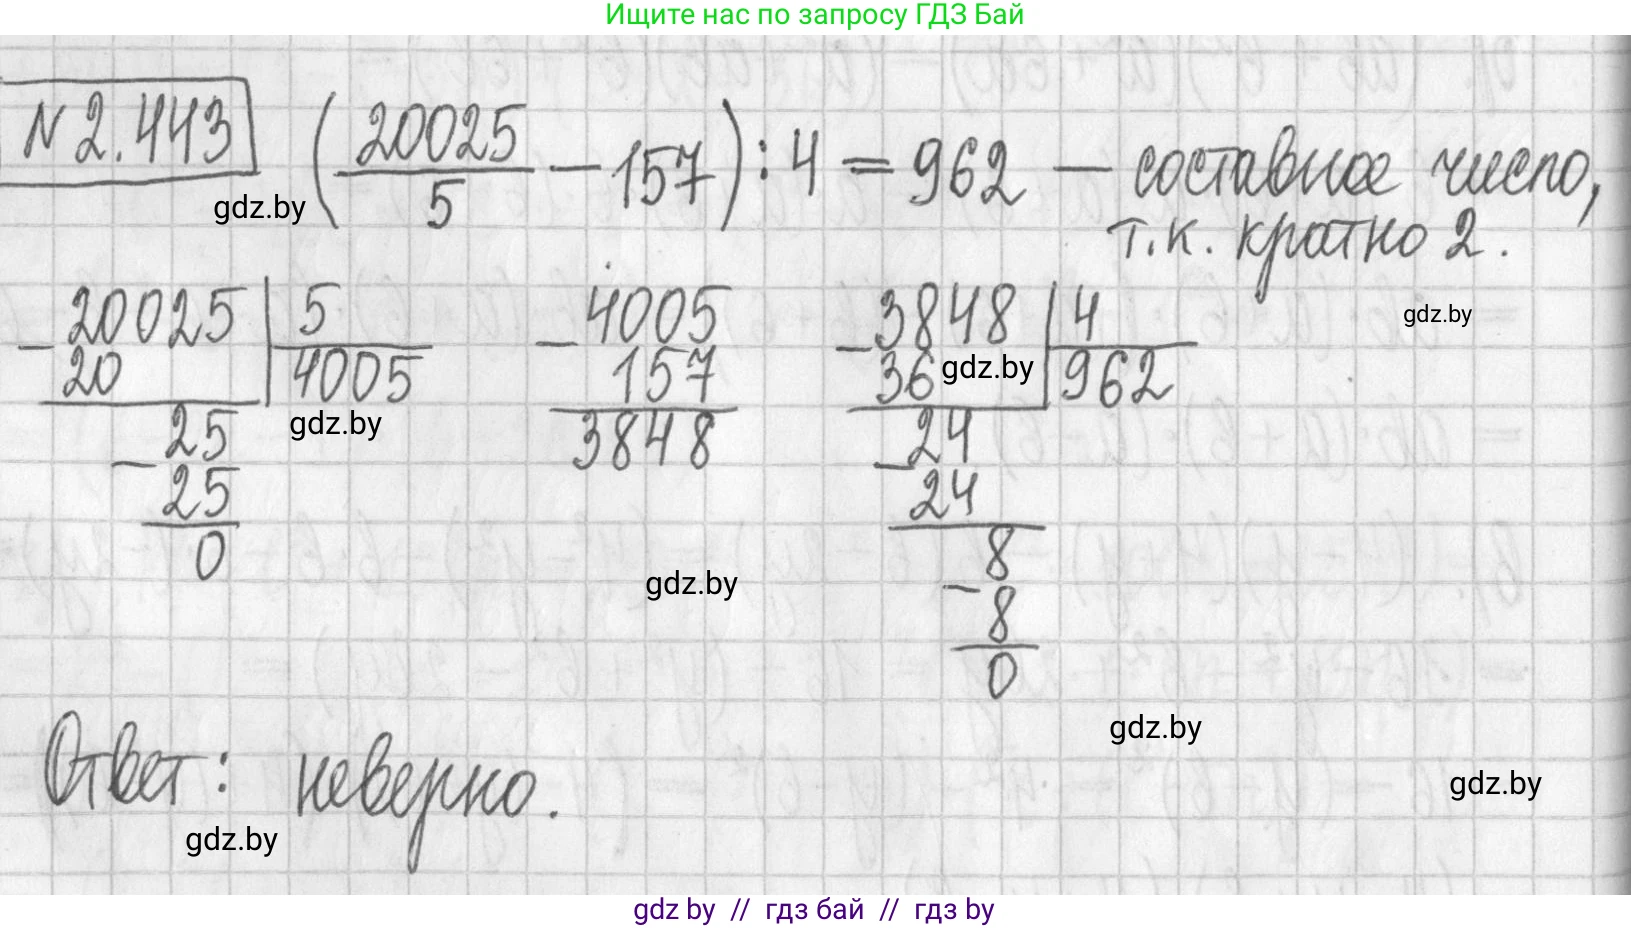 Ищите нас по запросу ГДЗ Бай
N 2.443 (20025/5 − 157) : 4 = 962 — составное число,
т.к. кратно 2.
gdz.by
20025 | 5
− 20 | 4005
25
− 25
0
gdz.by
4005
− 157
3848
3848 | 4
− 36 | 962
24
− 24
8
− 8
0
gdz.by
gdz.by
gdz.by
gdz.by
Ответ: неверно.
gdz.by
gdz.by
gdz by // гдз бай // гдз by